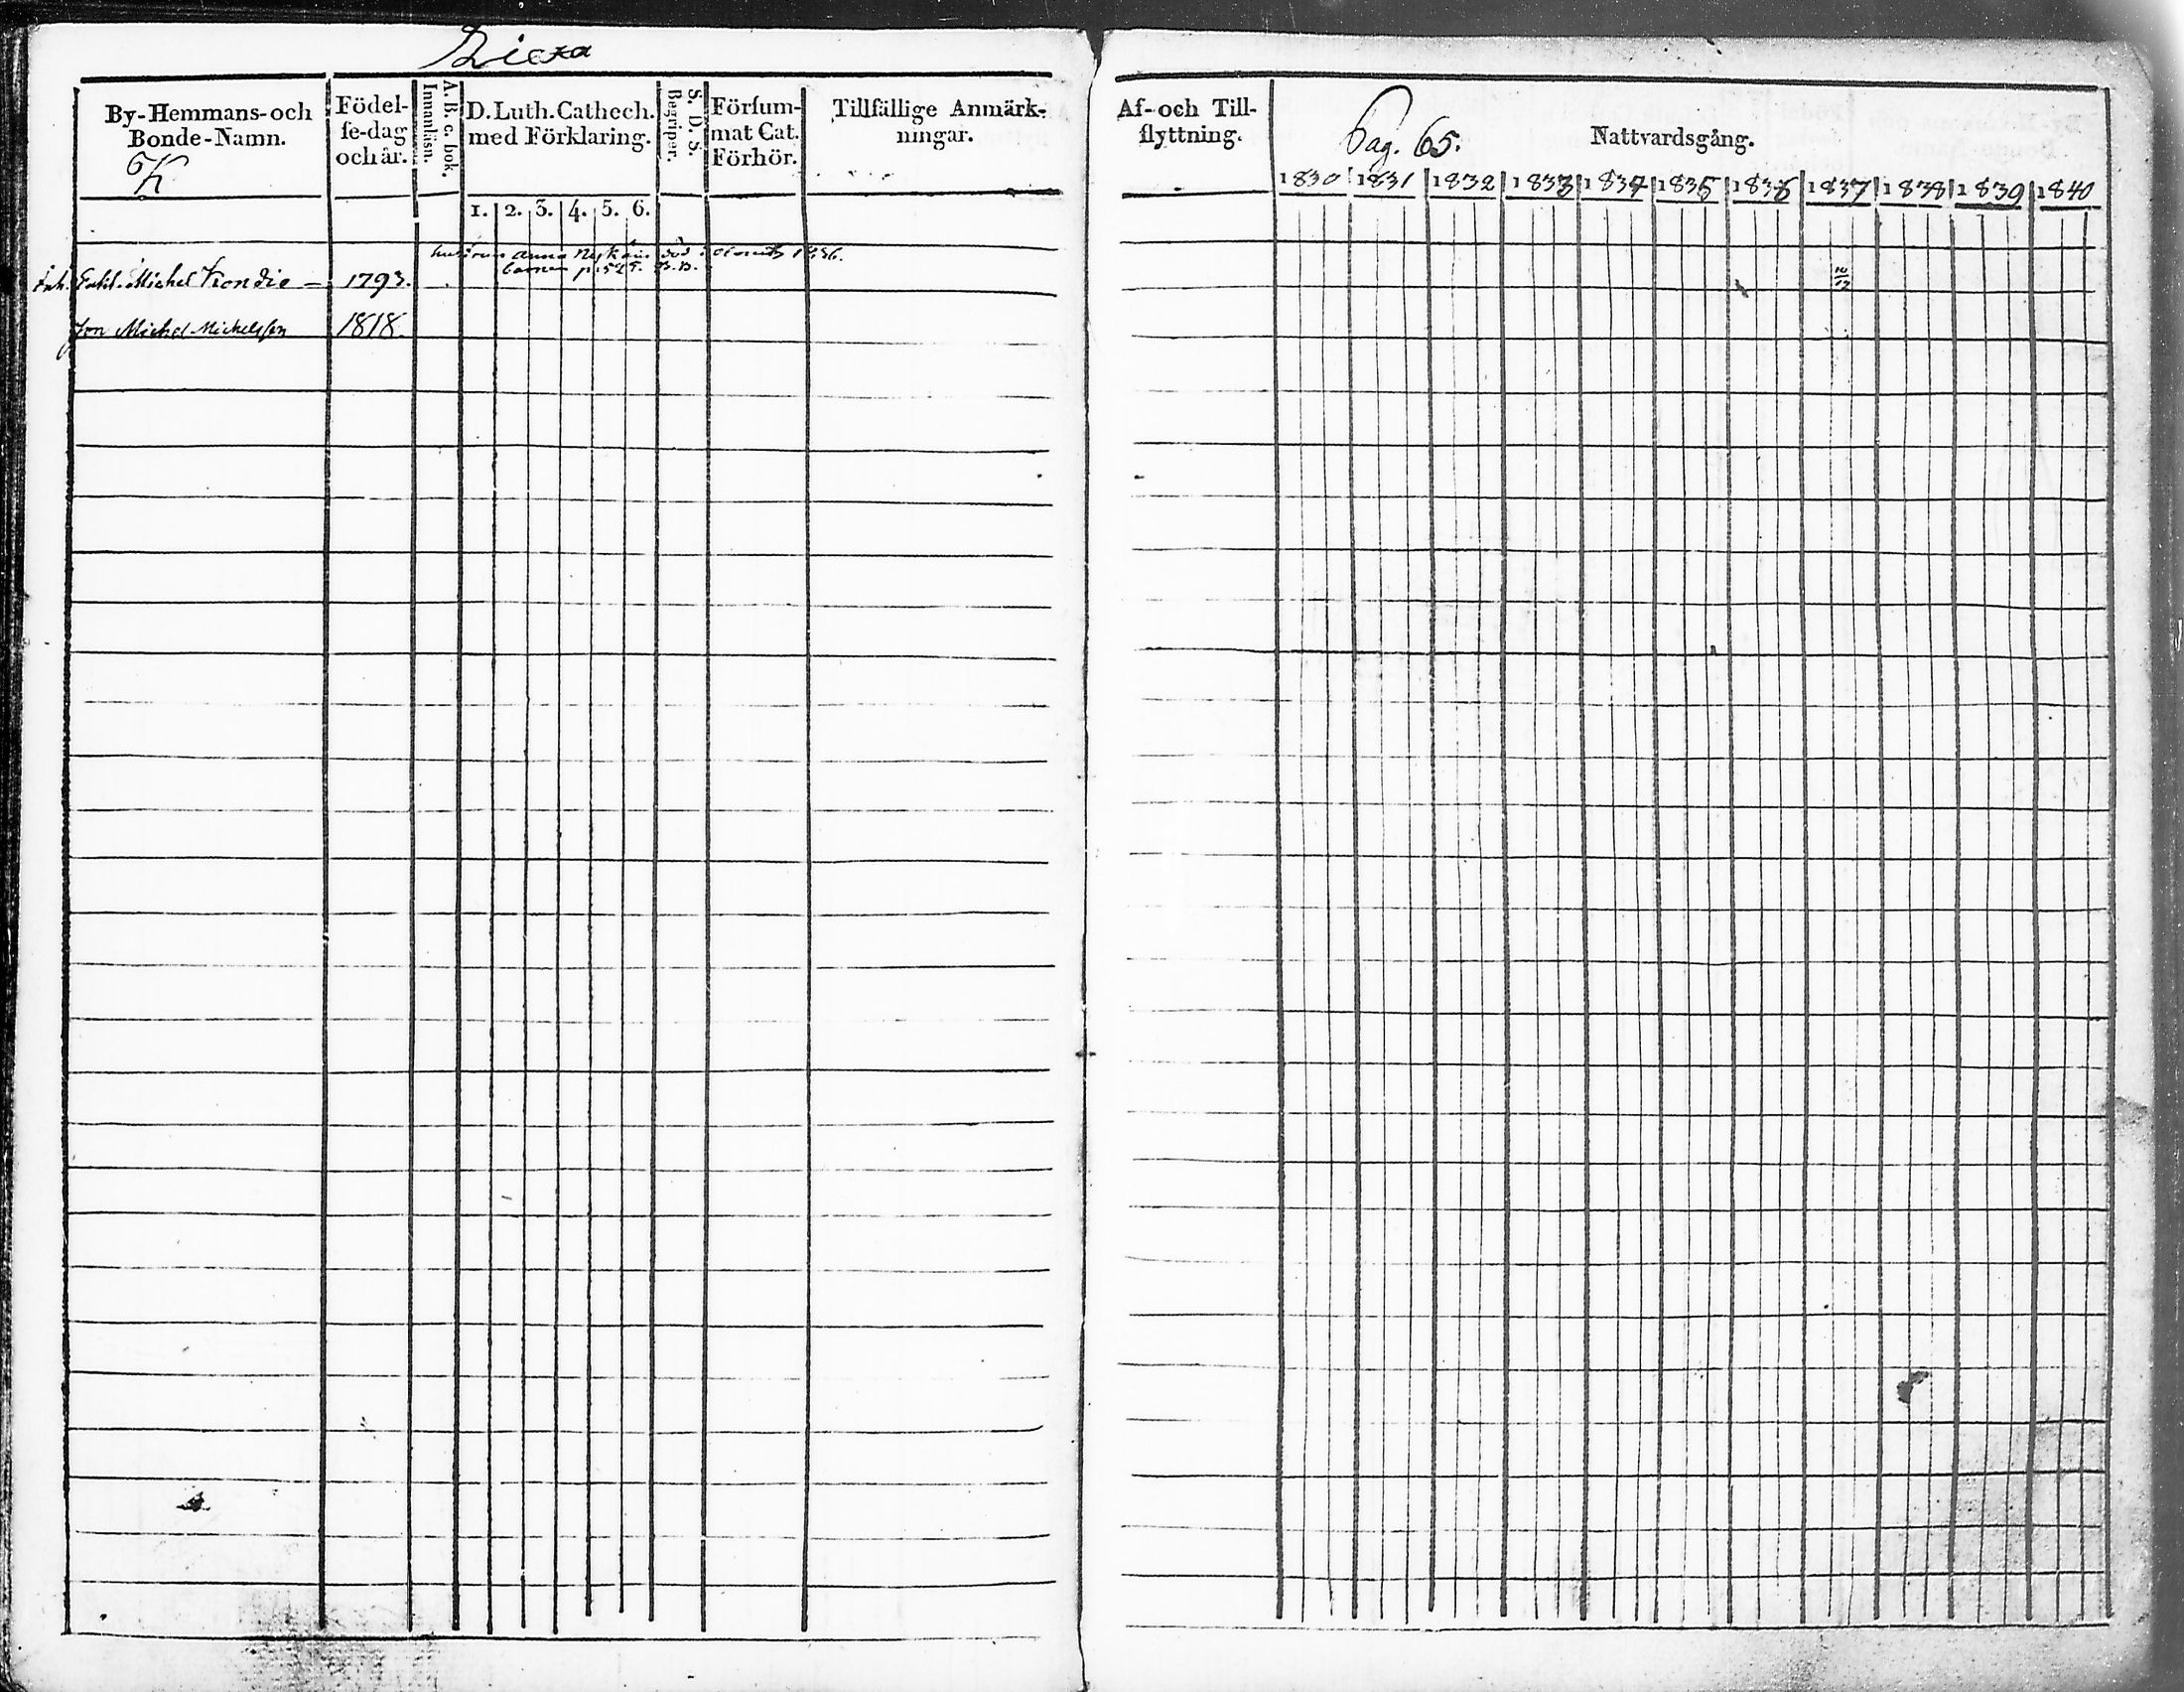 By-Hemmans-och Bonde-Namn.
K
Födel-se-dag och år.
A. B. c. bok. Innanläsn.
D. Luth. Cathech. med Förklaring.
1. 2. 3. 4. 5. 6.
S. D. S. Begriper.
Försummat Cat. Förhör.
Tillfällige Anmärk-ningar.
hustrun Anna död 1836.
barnen p. 525.
Enkl. Michel 1793.
Son Michel Michelsson 1818.
Af- och Till-flyttning.
Pag. 65.
Nattvardsgång.
1830 1831 1832 1833 1834 1835 1836 1837 1838 1839 1840